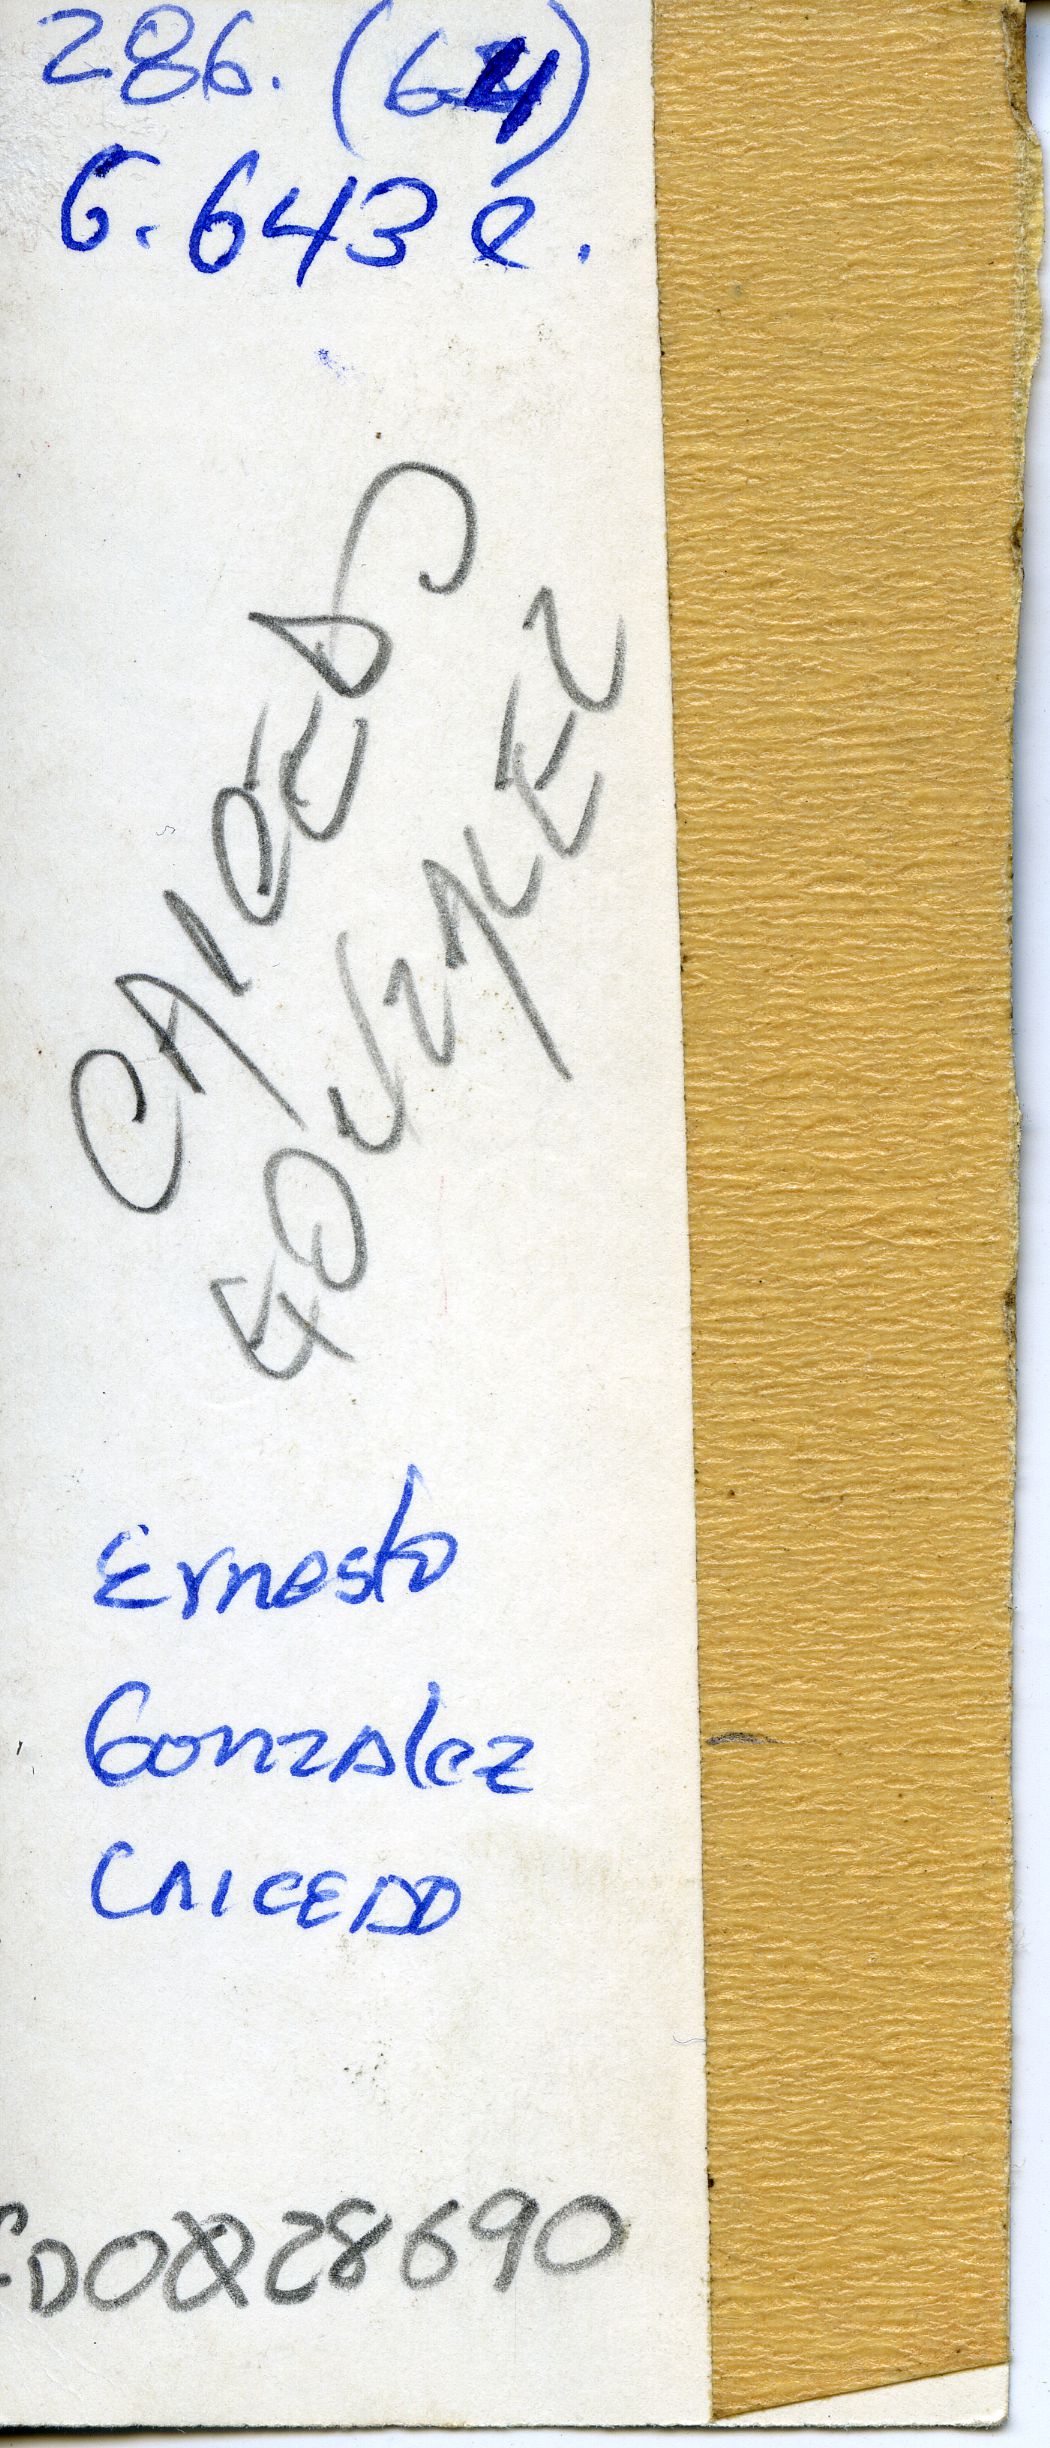 286. (64)
G. 643 e.
CAICEDO
GONZALEZ
Ernesto
GonzAlez
CAICEDO
DO28690